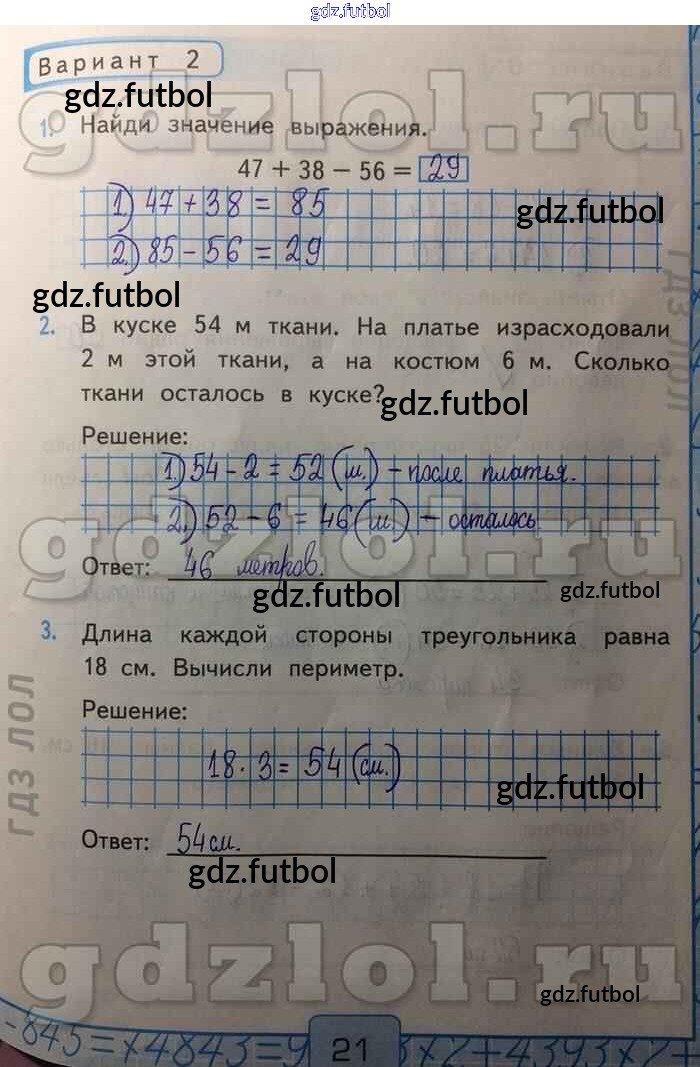 gdz.futbol
Вариант 2
gdz.futbol
gdzlol.ru
1. Найди значение выражения.
47 + 38 − 56 = 29
1) 47 + 38 = 85
gdz.futbol
2) 85 − 56 = 29
ГДЗ ЛОЛ
gdz.futbol
2. В куске 54 м ткани. На платье израсходовали
2 м этой ткани, а на костюм 6 м. Сколько
ткани осталось в куске?
gdz.futbol
Решение:
1) 54 − 2 = 52 (м.) − после платья.
2) 52 − 6 = 46 (м.) − осталось
gdzlol.ru
Ответ: 46 метров.
gdz.futbol
gdz.futbol
3. Длина каждой стороны треугольника равна
18 см. Вычисли периметр.
ГДЗ ЛОЛ
Решение:
18 · 3 = 54 (см.)
gdz.futbol
Ответ: 54 см.
gdz.futbol
gdzlol.ru
gdz.futbol
-845=×4843=9
21
3×2+4393×2+